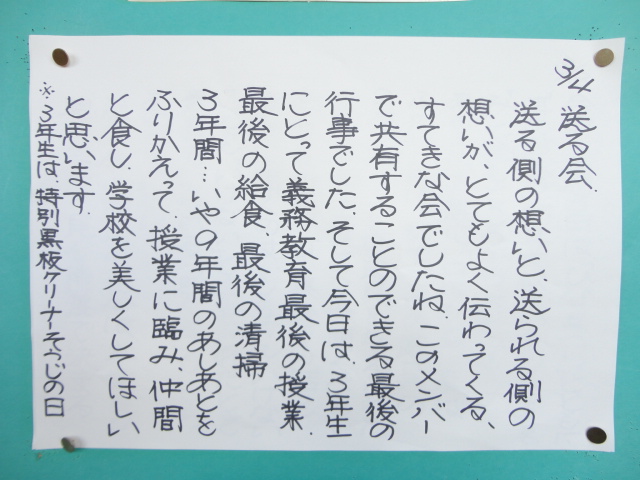 3/4 送る会.
送る側の想いと、送られる側の
想いが、とてもよく伝わってくる、
すてきな会でしたね。このメンバー
で共有することのできる最後の
行事でした。そして今日は、3年生
にとって義務教育最後の授業.
最後の給食、最後の清掃
3年間…いや9年間のあしあとを
ふりかえって、授業に臨み、仲間
と食し、学校を美しくしてほしい
と思います.
※3年生は、特別黒板クリーナーそうじの日